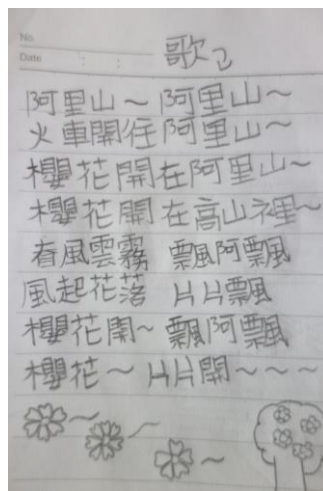 No.
Date : :
歌2
阿里山~ 阿里山~
火車開往阿里山~
櫻花開在阿里山~
櫻花開在高山裡~
春風雲霧 飄阿飄
風起花落 片片飄
櫻花開~ 飄阿飄
櫻花~ 片片開~~~